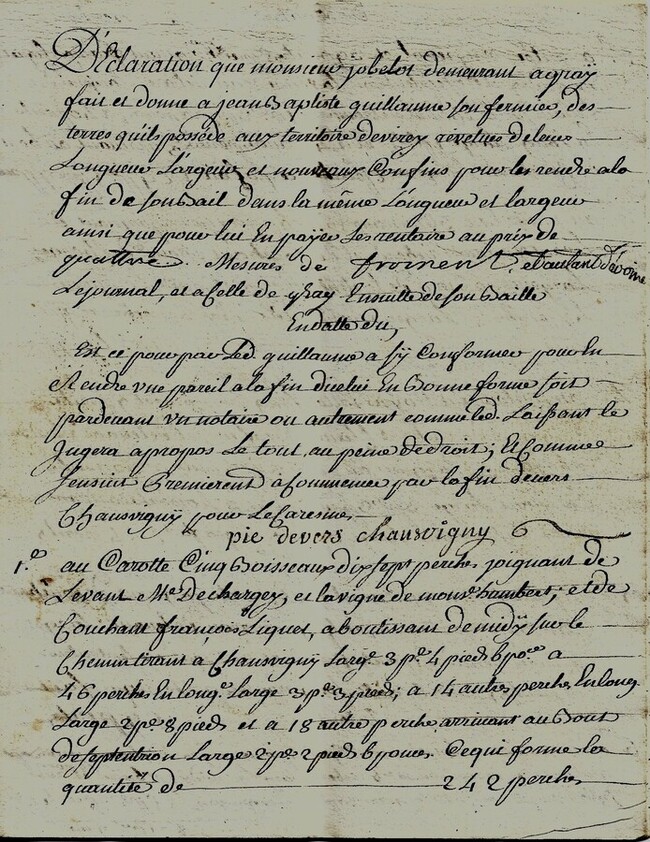 Déclaration que monsieur jobelot demeurant a gray
fait et donne a jean Baptiste guillaume son fermier, des
terres qu'ils possède aux territoire de virey revetues de leur
Longueur Largeur et nouveaux Confins pour les rendre a la
fin de son Bail dans la même Longueur et largeur
ainsi que pour lui En payer Les rentaire au prix de
quattre Mesures de froment et autant d'avoine
Le journal, et a Celle de gray Ensuitte de son Baille
En datte du,
Est ce pour par Led. guillaume à sÿ Conformer pour En
Rendre une pareil a la fin d'icelui En Bonne forme soit
pardevant un notaire ou autrement comme led. Laissant le
Jugera apropos Le tout au peine de droit; Et Comme
Sensuit Premierent à Commencer par la fin devers
Chausvigny pour Le Caresme
pie devers chausvigny
1.º au Carotte Cinq Boisseaux dix sept perches joignant de
Levant M.r De chargey, et la vigne de mons.r humbert; et de
Couchant françois Liguet, aboutissant de midÿ sur le
Chemin tirant à Chausvigny Larg.e 3 p.e 4 pieds 6 po.es a
46 perches En long.r Large 3 p.e 3 pieds; a 14 autres perches En long.
Large 2 p.e 8 pieds et a 18 autre perche arrivant au Bout
de septentrion Large 2 p.e 2 pieds 6 pouces Ce qui forme la
quantité de 242 perches